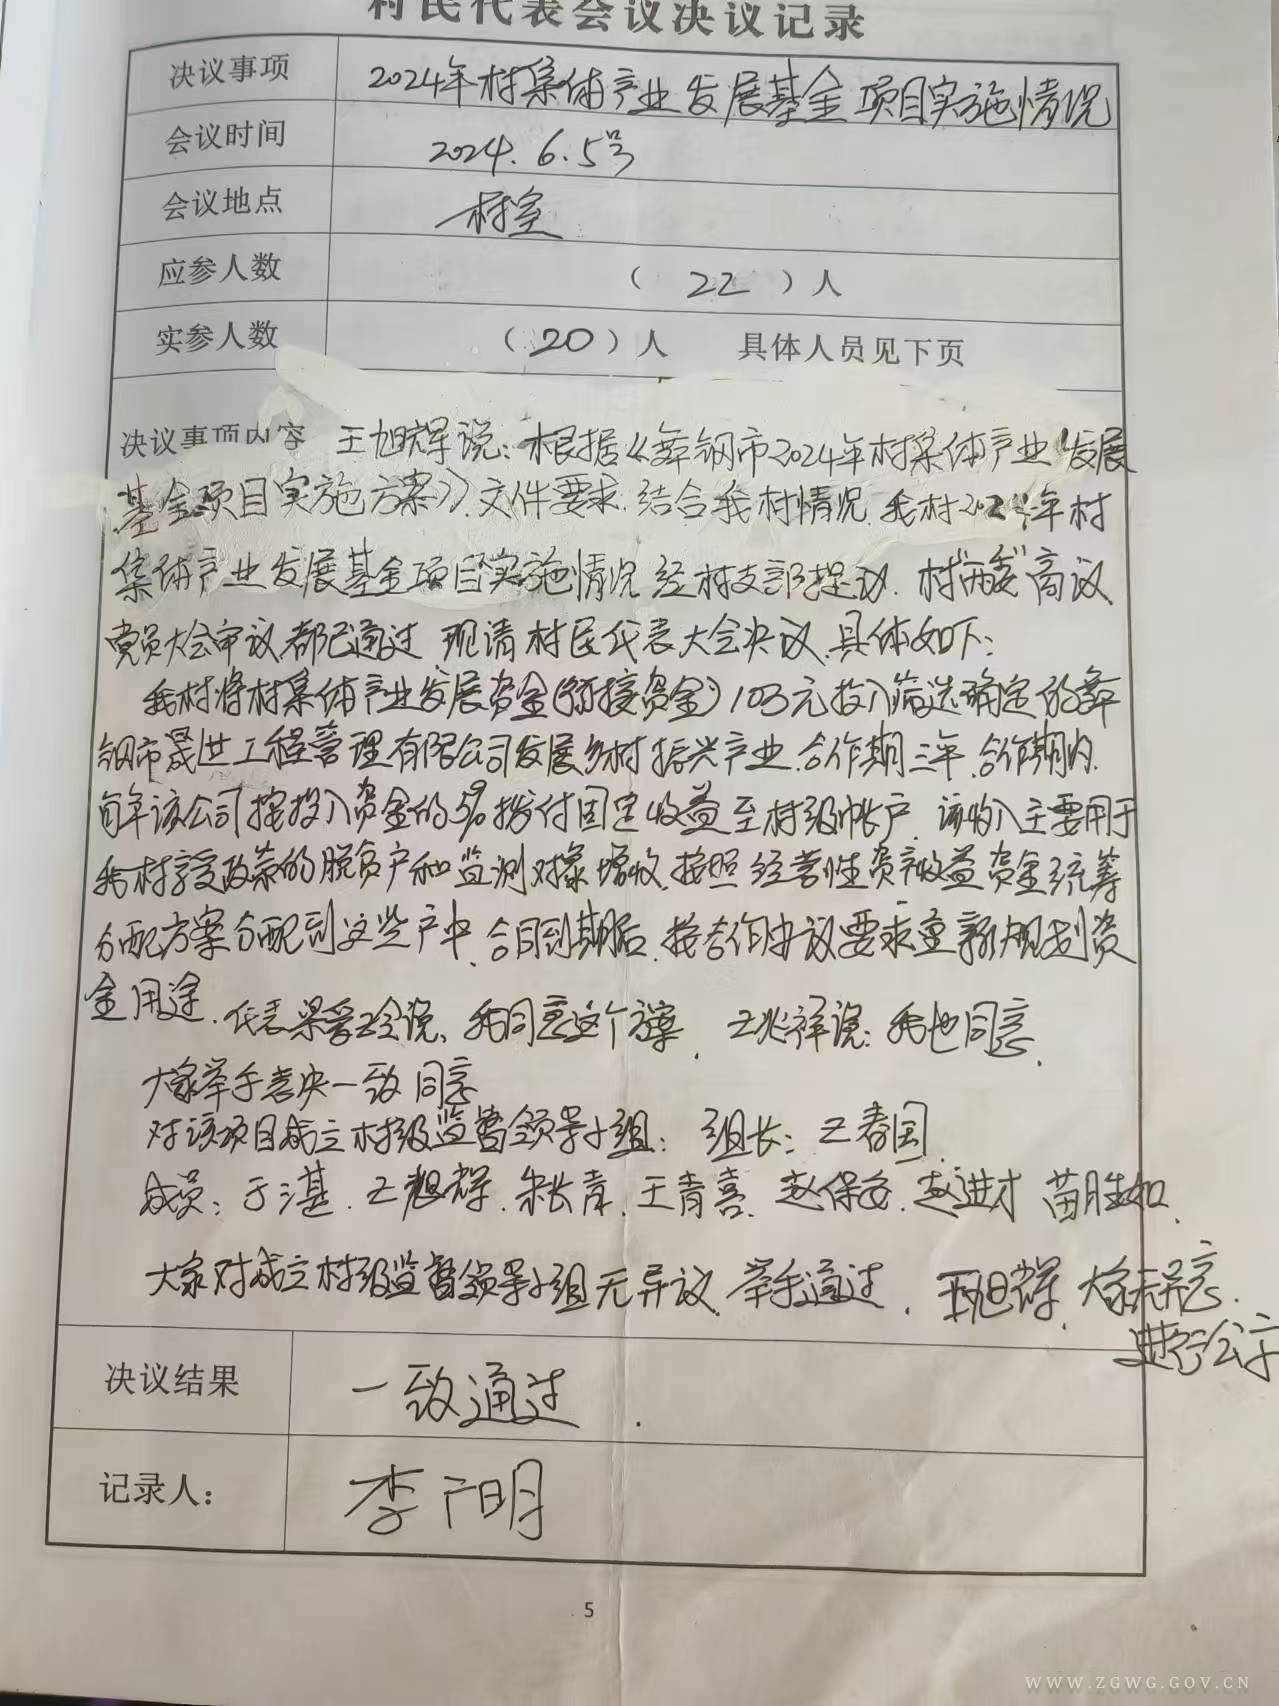 村民代表会议决议记录
决议事项 2024年村集体产业发展基金项目实施情况
会议时间 2024.6.5号
会议地点 村室
应参人数 (22)人
实参人数 (20)人 具体人员见下页
决议事项内容 王旭辉说:根据《舞钢市2024年村集体产业发展
基金项目实施方案》文件要求.结合我村情况.我村2024年村
集体产业发展基金项目实施情况 经村支部提议.村"两委"商议
党员大会审议都已通过 现请村民代表大会决议.具体如下:
我村将村集体产业发展资金(衔接资金)103元投入筛选确定的舞
钢市晟世工程管理有限公司发展乡村振兴产业.合作期三年.合作期内.
每年该公司按投入资金的5%拨付固定收益至村级帐户.该收入主要用于
我村享受政策的脱贫户和监测对象增收.按照经营性资产收益资金统筹
分配方案分配到这些户中.合同到期后.按合作协议要求重新规划资
金用途.代表梁爱玲说、我同意这个方案.王兆祥说:我也同意.
大家举手表决一致同意
对该项目成立村级监督领导小组:组长:王春国.
成员:于湛.王旭辉.朱长青.王青喜.赵保安.赵进才 苗胜如.
大家对成立村级监督领导小组无异议.举手通过.王旭辉.大家无异意.
进行公示
决议结果 一致通过.
记录人: 李阳明
5
WWW.ZGWG.GOV.CN